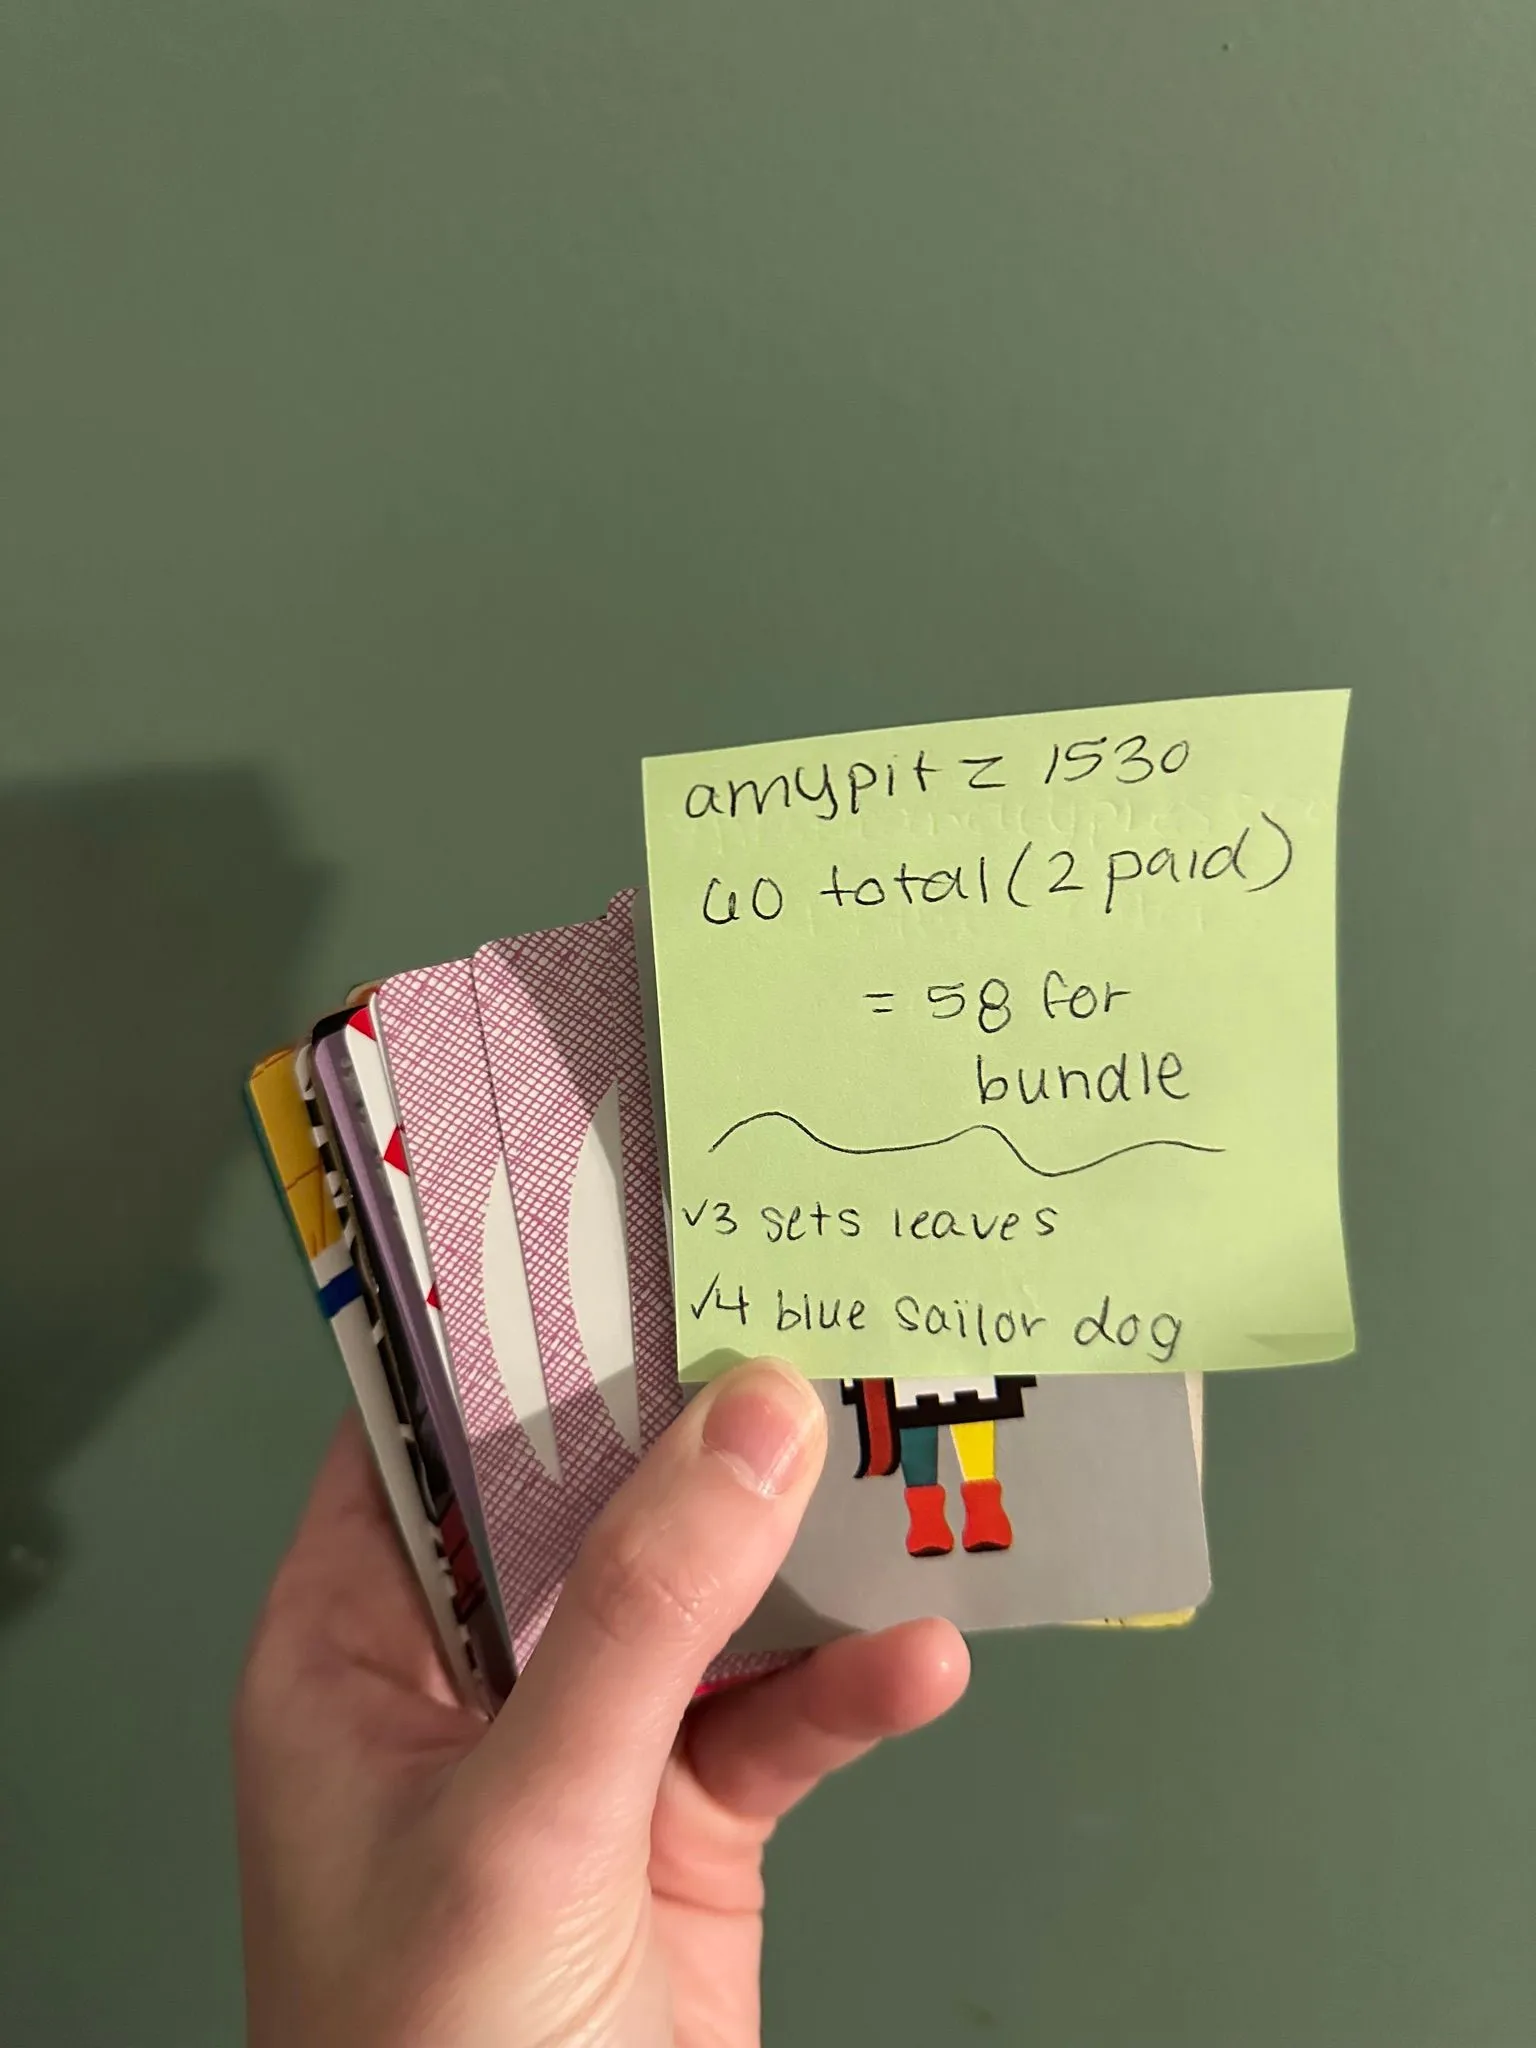 amypitz 1530
60 total (2 paid)
= 58 for
bundle
✓3 sets leaves
✓4 blue sailor dog